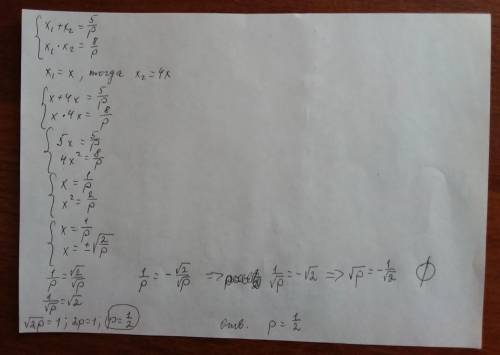 x₁+x₂ = 5/p
x₁·x₂ = 8/p
x₁ = x, тогда x₂ = 4x
x+4x = 5/p
x·4x = 8/p
5x = 5/p
4x² = 8/p
x = 1/p
x² = 2/p
x = 1/p
x = ±√(2/p)
1/p = √2/√p 1/p = -√2/√p => 1/√p = -√2 => √p = -1/√2 ∅
1/√p = √2
√2p = 1; 2p = 1, p = 1/2 отв. p = 1/2